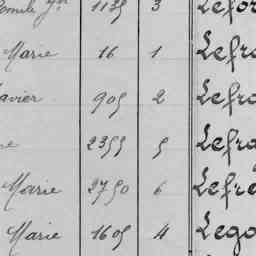 Emile 1139 3 Lefor
Marie 16 1 Lefra
avier 909 2 Lefra
ne 2399 9 Lefra
Marie 2790 6 Lefre
Marie 1609 4 Lego